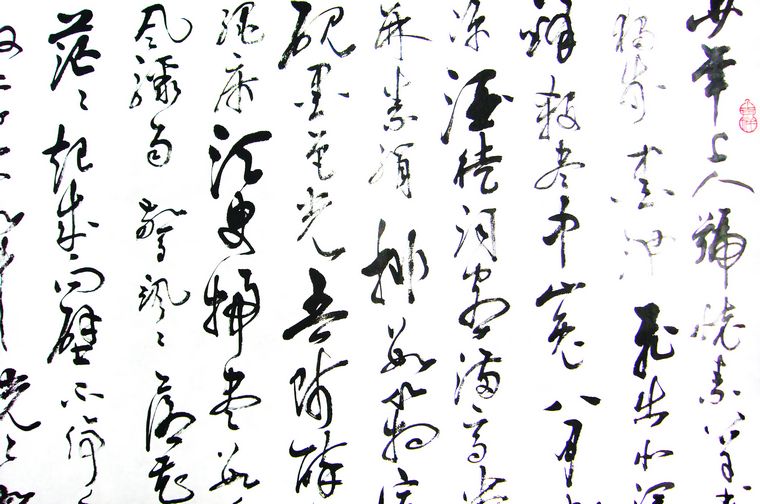 少年上人號懷素草
獨步墨池飛出北溟
鋒殺盡中山兔八月
涼酒徒詞客滿高堂
麻素絹排數箱宣
硯墨色光吾師醉
繩床須臾掃盡數
風驟雨驚颯颯落花
茫茫起來向壁不停